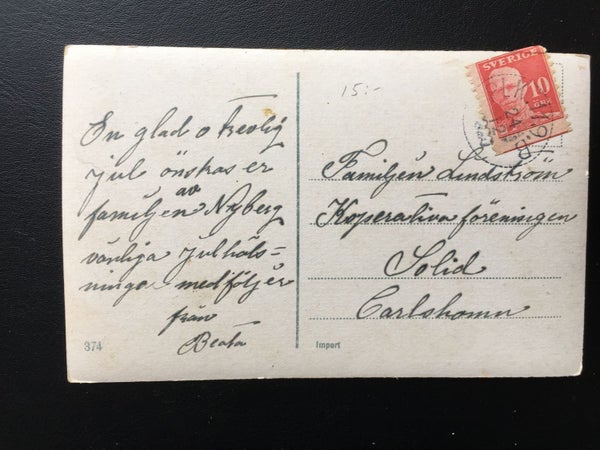 En glad o trevlig
jul önskas er
av
familjen Nyberg
vänliga julhäls=
ningar medföljer
från
Beata
374
15:-
SVERIGE
10
ÖRE
Familjen Lindström
Koperativa föreningen
Solid
Carlshamn
Import